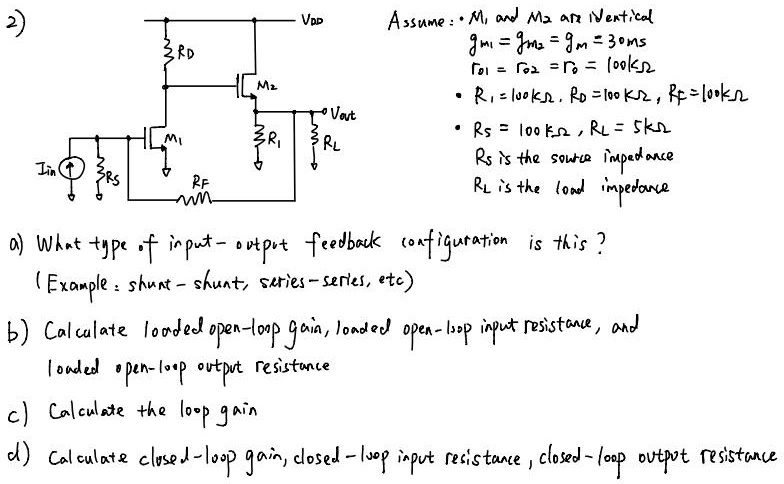 2)
VDD
RD
M2
Vout
M1
R1
RL
Iin
RS
RF
Assume : • M1 and M2 are identical
gm1 = gm2 = gm = 30ms
ro1 = ro2 = ro = 100kΩ
• R1 = 100kΩ, RD = 100kΩ, RF = 100kΩ
• RS = 100kΩ, RL = 5kΩ
RS is the source impedance
RL is the load impedance
a) What type of input-output feedback configuration is this?
(Example: shunt-shunt, series-series, etc)
b) Calculate loaded open-loop gain, loaded open-loop input resistance, and
loaded open-loop output resistance
c) Calculate the loop gain
d) Calculate closed-loop gain, closed-loop input resistance, closed-loop output resistance